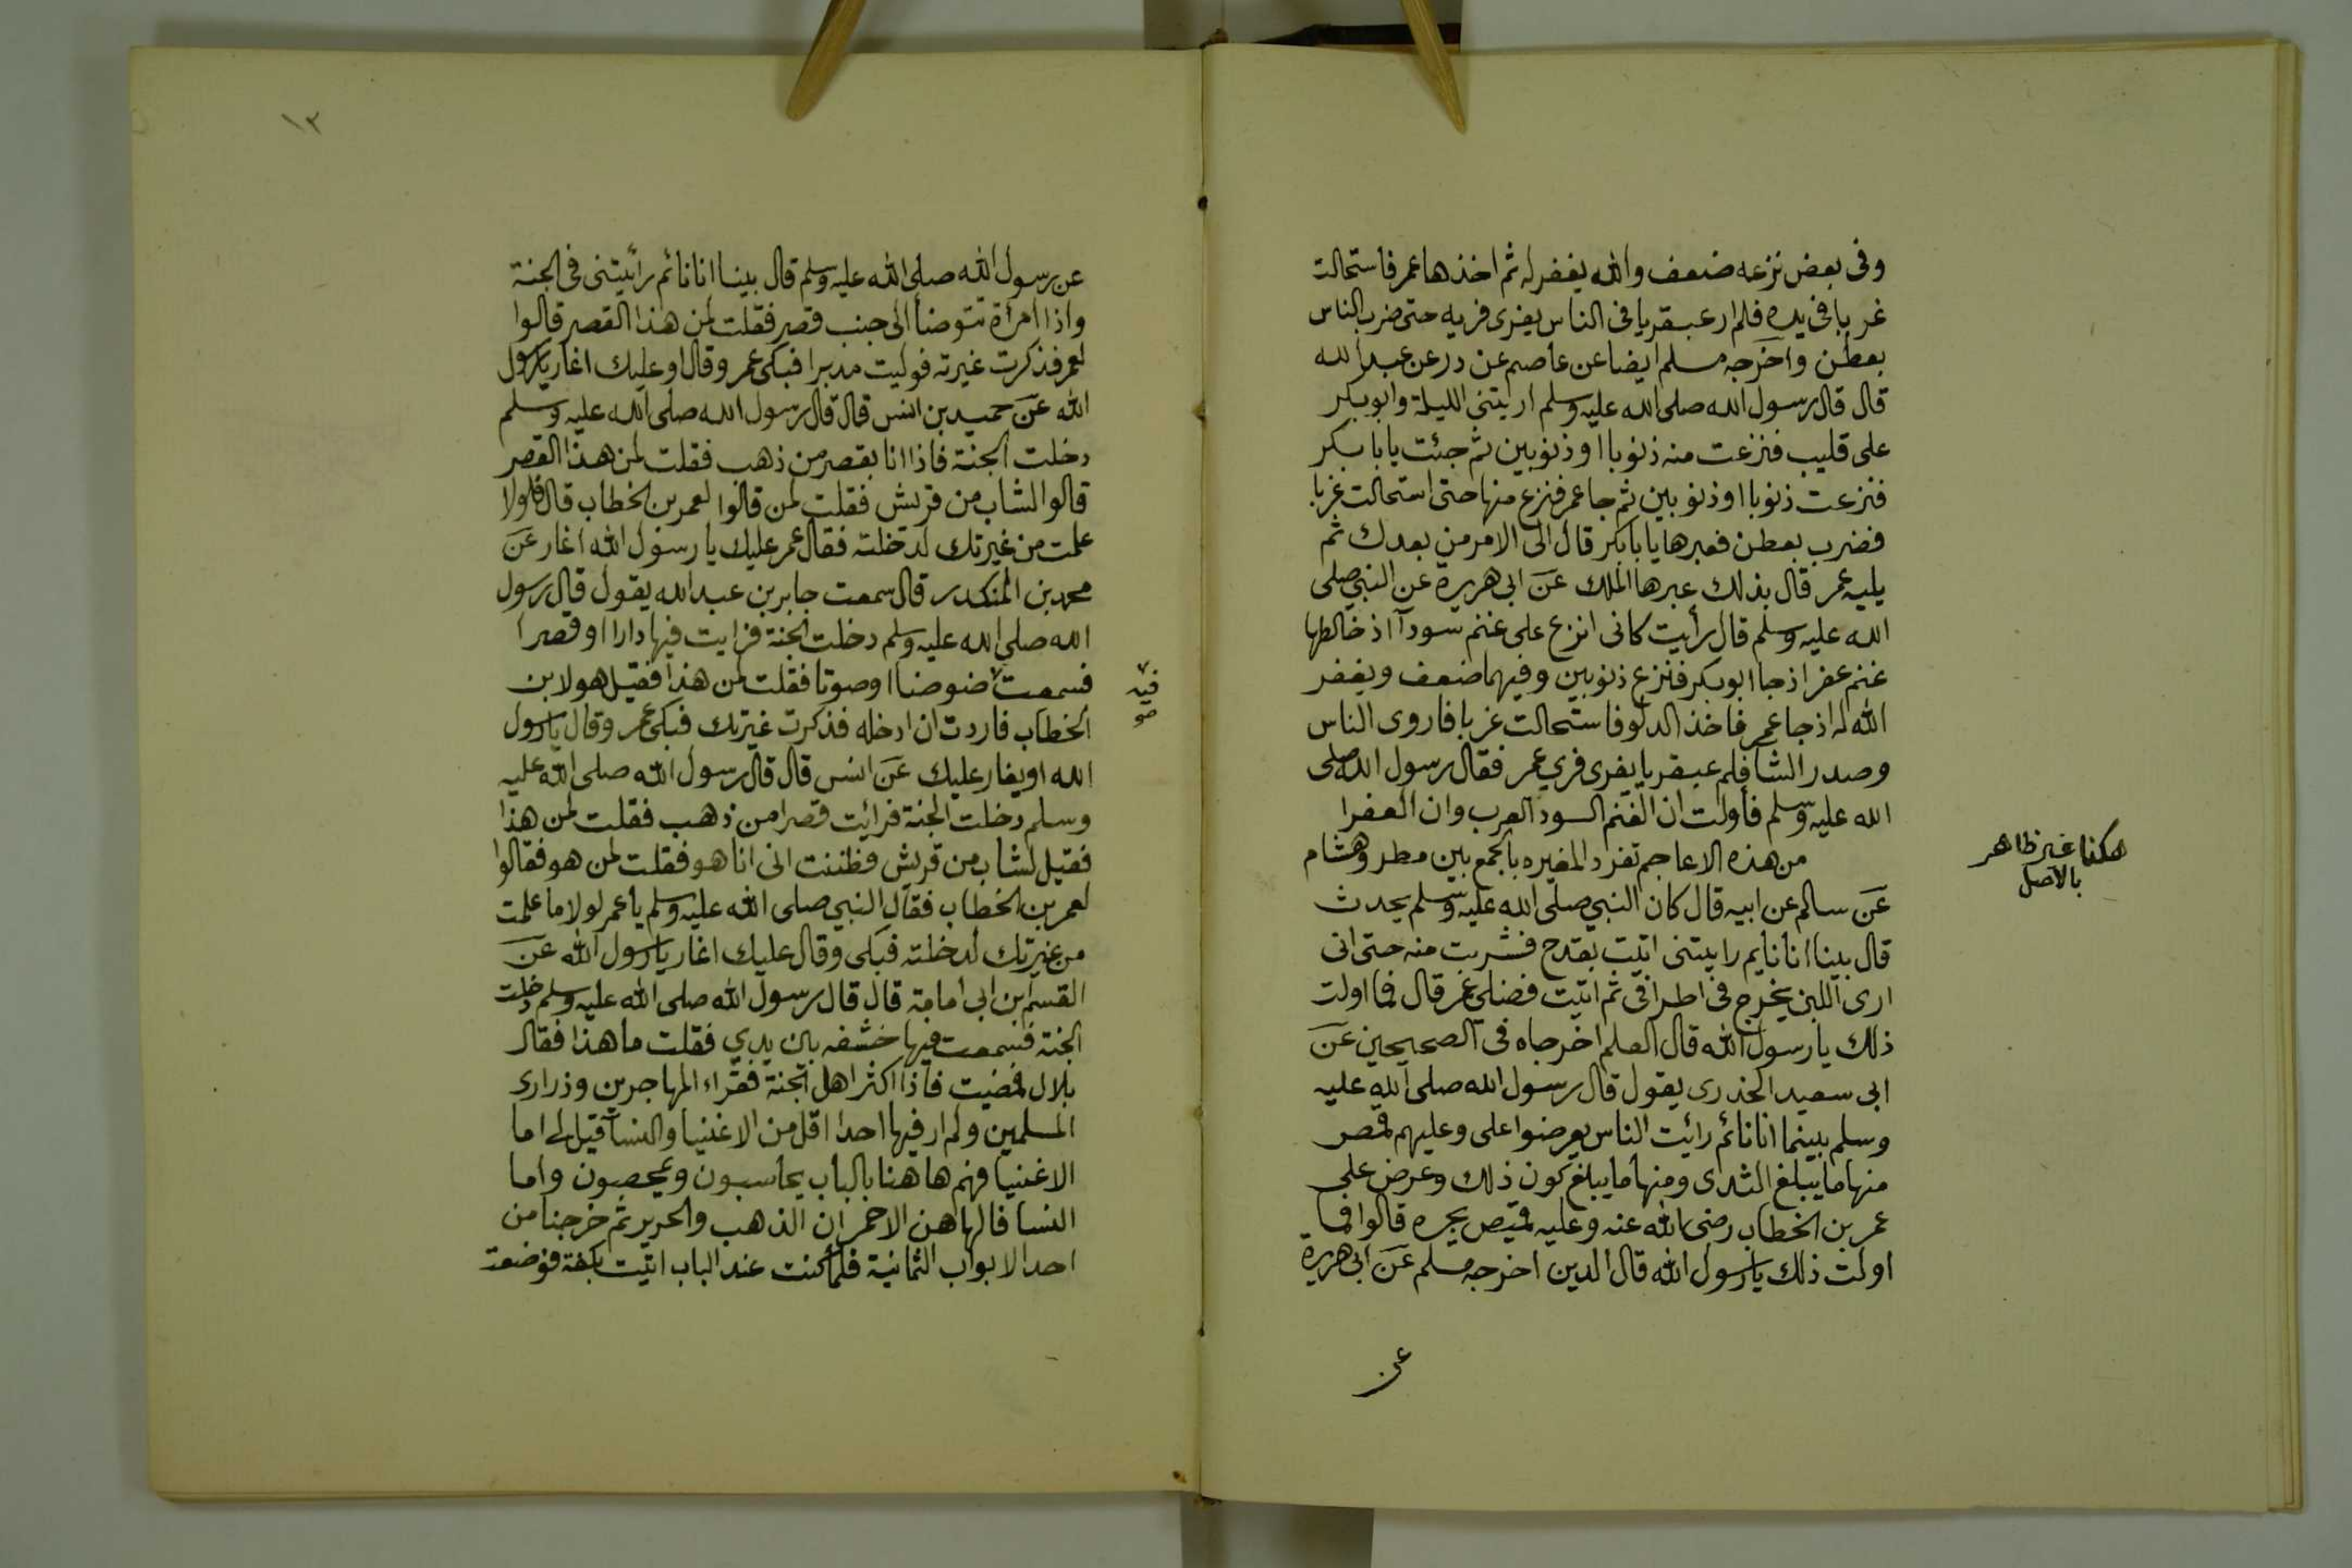 وفى بعض نزعه ضعف والله يغفر له ثم اخذها عمر فاستحالت
غربا فى يده فلم ار عبقريا فى الناس يفرى فريه حتى ضرب الناس
بعطن واخرجه مسلم ايضا عن عاصم عن درعن عبد الله
قال قال رسول الله صلى الله عليه وسلم اريتنى الليلة وابوبكر
على قليب فنزعت منه ذنوبا او ذنوبين ثم جئت يابا بكر
فنزعت ذنوبا او ذنوبين ثم جا عمر فنزع منها حتى استحالت غربا
فضرب بعطن فعبرها يا بابكر قال الى الامر من بعدك ثم
يليه عمر قال بذلك عبرها الملك عن ابى هريرة عن النبي صلى
الله عليه وسلم قال رأيت كانى انزع على غنم سودآ اذ خالطها
غنم عفر اذ جا ابوبكر فنزع ذنوبين وفيهما ضعف ويغفر
الله له اذ جا عمر فاخذ الدلو فاستحالت غربا فاروى الناس
وصدر الشا فلم عبقريا يفرى فري عمر فقال رسول الله صلى
الله عليه وسلم فأولت ان الغنم السود العرب وان العفرا
من هذه الاعاجم تفرد المغيره بالجمع بين مطر وهشام
هكذا غير ظاهر
بالاصل
عن سالم عن ابيه قال كان النبي صلى الله عليه وسلم يحدث
قال بينا انا نايم رايتنى اتيت بقدح فشربت منه حتى انى
ارى اللبن يخرج فى اطرافى ثم اتيت فضلى عمر قال فما اولت
ذلك يا رسول الله قال العلم اخرجاه فى الصحيحين عن
ابى سعيد الخدرى يقول قال رسول الله صلى الله عليه
وسلم بينما انا نائم رائت الناس يعرضوا على وعليهم قمص
منها ما يبلغ الثدى ومنها ما يبلغ كون ذلك وعرض على
عمر بن الخطاب رضى الله عنه وعليه قميص يجره قالوا فما
اولت ذلك يا رسول الله قال الدين اخرجه مسلم عن ابى هريرة
عن
١٣
عن رسول الله صلى الله عليه وسلم قال بينا انا نائم رائيتنى فى الجنة
واذا امرأة تتوضأ الى جنب قصر فقلت لمن هذا القصر قالوا
لعمر فذكرت غيرته فوليت مدبرا فبكى عمر وقال او عليك اغار يا رسول
الله عن حميد بن انس قال قال رسول الله صلى الله عليه وسلم
دخلت الجنة فاذا انا بقصر من ذهب فقلت لمن هذا القصر
قالوا لشاب من قريش فقلت لمن قالوا لعمر بن الخطاب قال فلولا
علمت من غيرتك لدخلته فقال عمر عليك يا رسول الله اغار عن
محمد بن المنكدر قال سمعت جابر بن عبد الله يقول قال رسول
الله صلى الله عليه وسلم دخلت الجنة فرايت فيها دارا او قصرا
فسمعت ضوضا او صوتا فقلت لمن هذا فقيل هو لابن
فيه
الخطاب فاردت ان ادخله فذكرت غيرتك فبكى عمر وقال يا رسول
الله اويغار عليك عن انس قال قال رسول الله صلى الله عليه
وسلم دخلت الجنة فرائيت قصرا من ذهب فقلت لمن هذا
فقيل لشاب من قريش فظننت انى انا هو فقلت لمن هو فقالوا
لعمر بن الخطاب فقال النبي صلى الله عليه وسلم يا عمر لولا ما علمت
من غيرتك لدخلته فبكى وقال عليك اغار يا رسول الله عن
القسم ابن ابى امامة قال قال رسول الله صلى الله عليه وسلم دخلت
الجنة فسمعت فيها خشفه بين يدي فقلت ما هذا فقال
بلال فمضيت فاذا اكثر اهل الجنة فقراء المهاجرين وذرارى
المسلمين ولم ار فيها احدا اقل من الاغنيا والنسا فقيل لى اما
الاغنيا فهم هاهنا بالباب يحاسبون ويمحصون واما
النسا فالهاهن الاحمران الذهب والحرير ثم خرجنا من
احد الابواب الثمانية فلما كنت عند الباب اتيت بكفة فوضعت